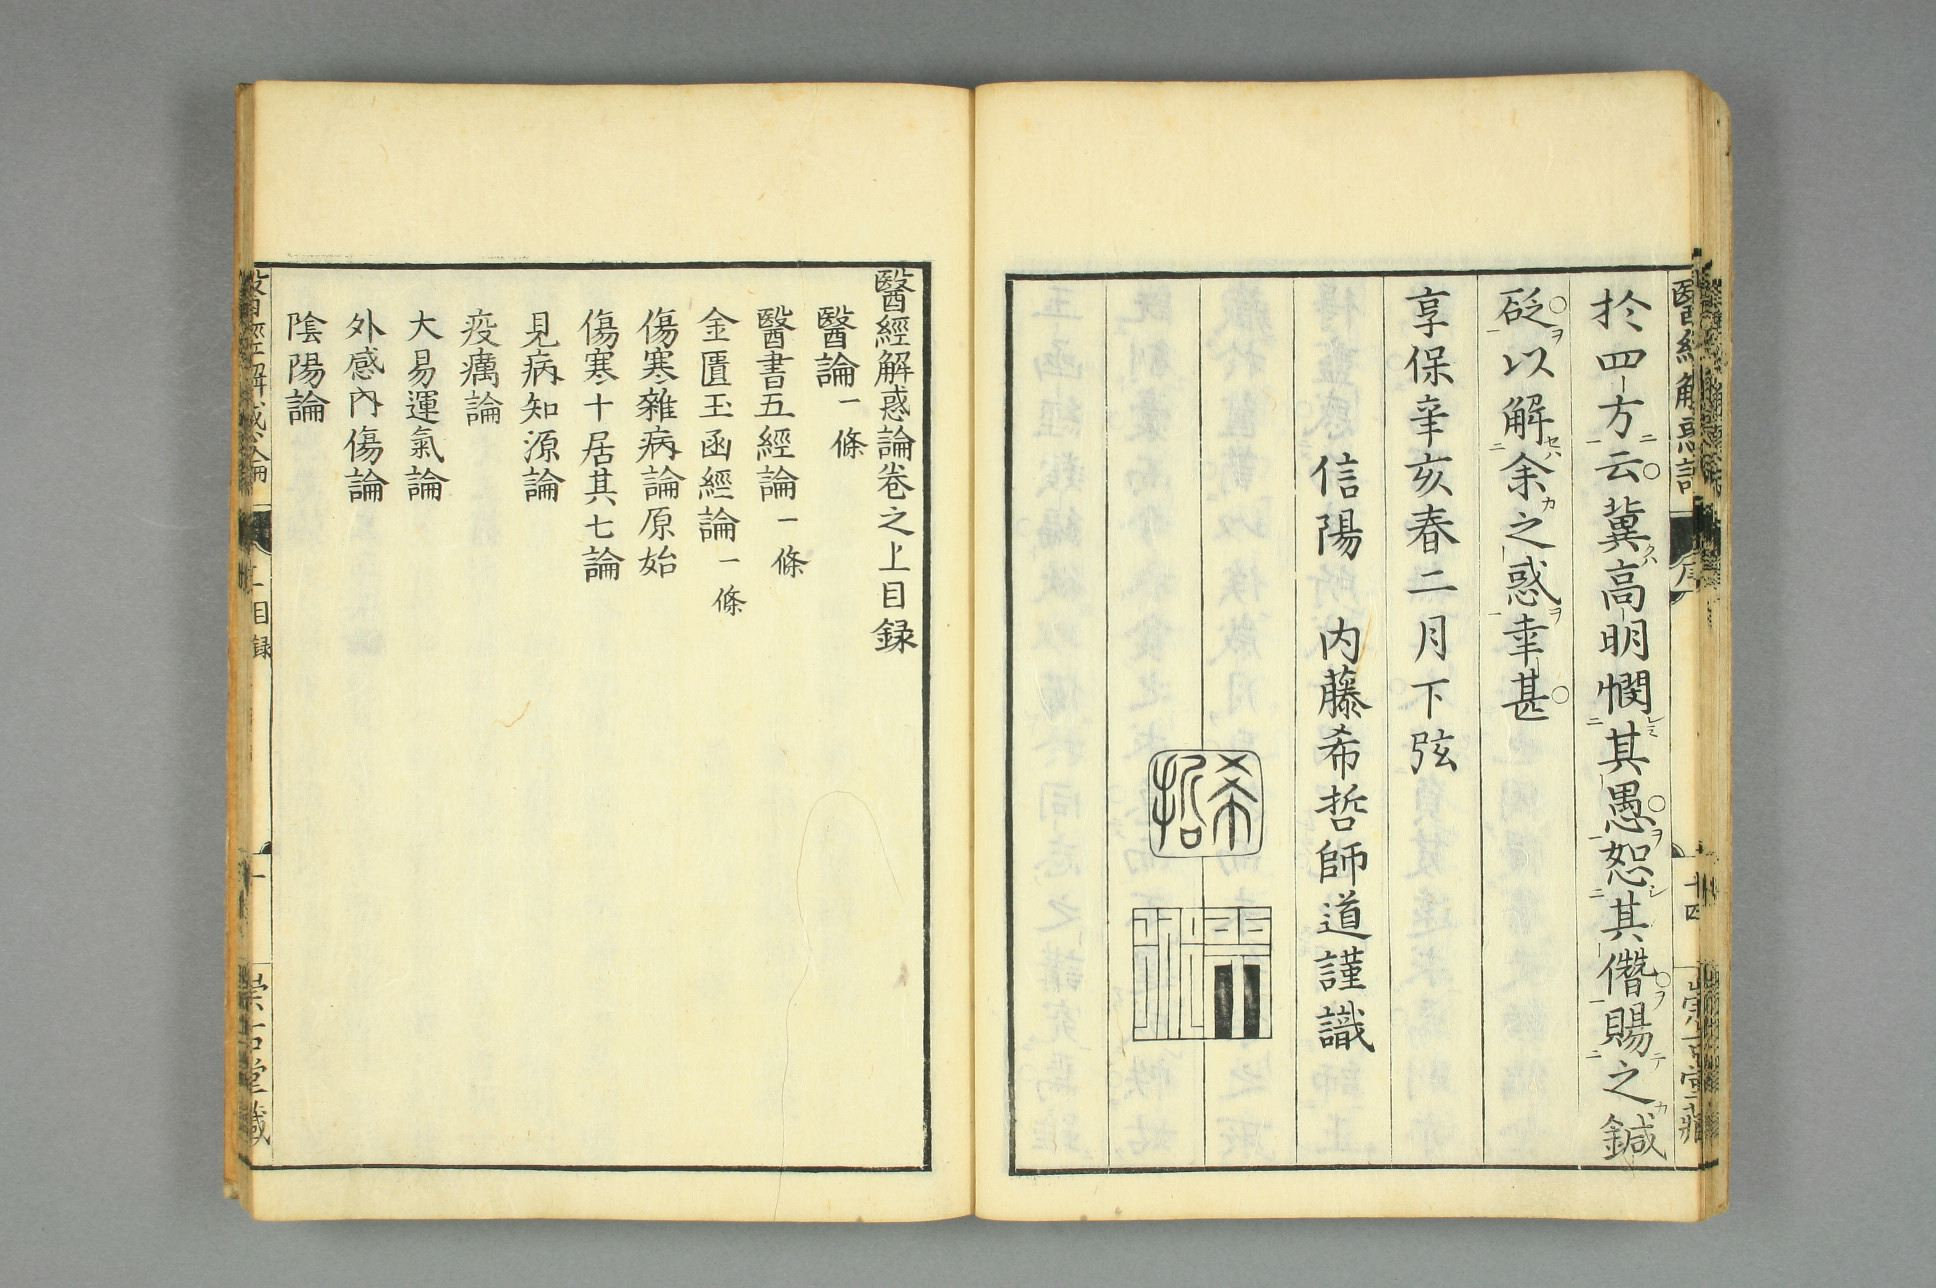 於四方云冀高明憫其愚恕其僭賜之鍼
砭以解余之惑幸甚
享保辛亥春二月下弦
信陽 内藤希哲師道謹識
希哲
醫經解惑論卷之上目録
醫論一條
醫書五經論一條
金匱玉函經論一條
傷寒雜病論原始
傷寒十居其七論
見病知源論
疫癘論
大易運氣論
外感內傷論
陰陽論
醫經解惑論 上目録 一 崇古堂藏